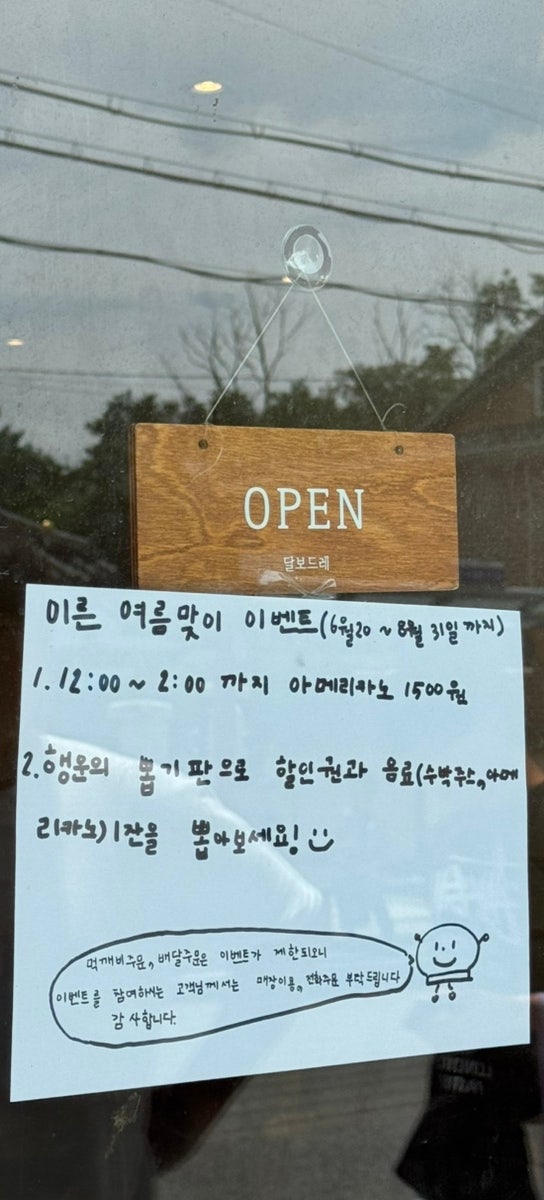 OPEN
달보드레
이른 여름맞이 이벤트(6월20 ~ 8월 31일 까지)
1. 12:00 ~ 2:00 까지 아메리카노 1500원
2. 행운의 뽑기 판으로 할인권과 음료(수박주스, 아메
리카노) 1잔을 뽑아보세요!
먹깨비주문, 배달주문은 이벤트가 제한되오니
이벤트를 참여하시는 고객님께서는 매장이용, 전화주문 부탁드립니다
감사합니다.